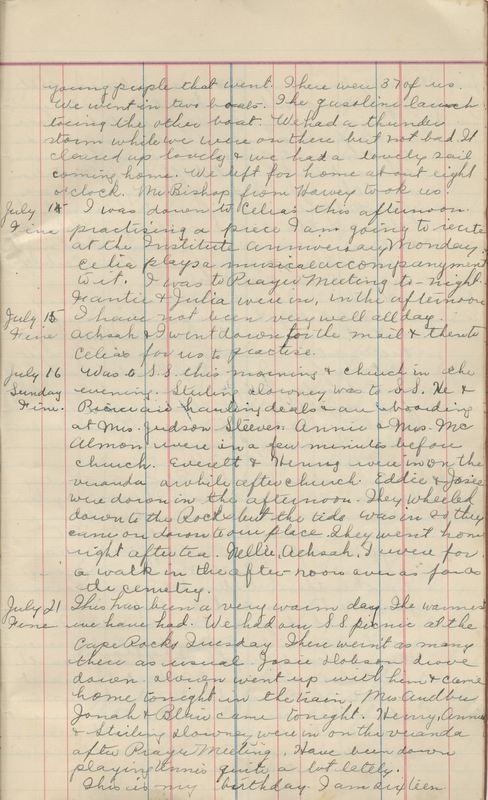 young people that went. There were 37 of us.
We went in two boats. The gasoline launch
towing the other boat. We had a thunder
storm while we were on there but not bad. It
cleared up lovely & we had a lovely sail
coming home. We left for home about eight
o'clock. Mr Bishop from Harvey took us.
July 14 I was down to Celia's this afternoon
Fine practising a piece I am going to recite
at the Institute anniversary, Monday.
Celia plays a musical accompanyment
to it. I was to Prayer Meeting to-night.
& Julia were in, in the afternoon
July 15 I have not been very well all day.
Fine Achsah & I went down for the mail & then to
Celia's for us to practise.
July 16 Was to S.S. this morning & church in the
Sunday evening. Stirling Downey was to S.S. He &
Fine. are hauling deals & are boarding
at Mrs. Judson Sleeves. Annie & Mrs. Mc
Almon were in a few minutes before
church. Everett & Henry were in on the
veranda awhile after church. Eddie & Josie
were down in the afternoon. They wheeled
down to the Rocks but the tide was in so they
came on down to our place. They went home
right after tea. Nellie, Achsah, I were for
a walk in the after-noon over as far as
the cemetry.
July 21 This has been a very warm day. The warmest
Fine we have had. We had our S.S picnic at the
Cape Rocks Tuesday. There wen't as many
there as usual. Josie Dobson drove
down, went up with him & came
home tonight in the train, Mrs
Jonah & came tonight. Henry, Annie
& Stirling Downey were in on the veranda
after Prayer Meeting. Have been down
playing tennis quite a lot lately.
This is my birthday. I am sixteen